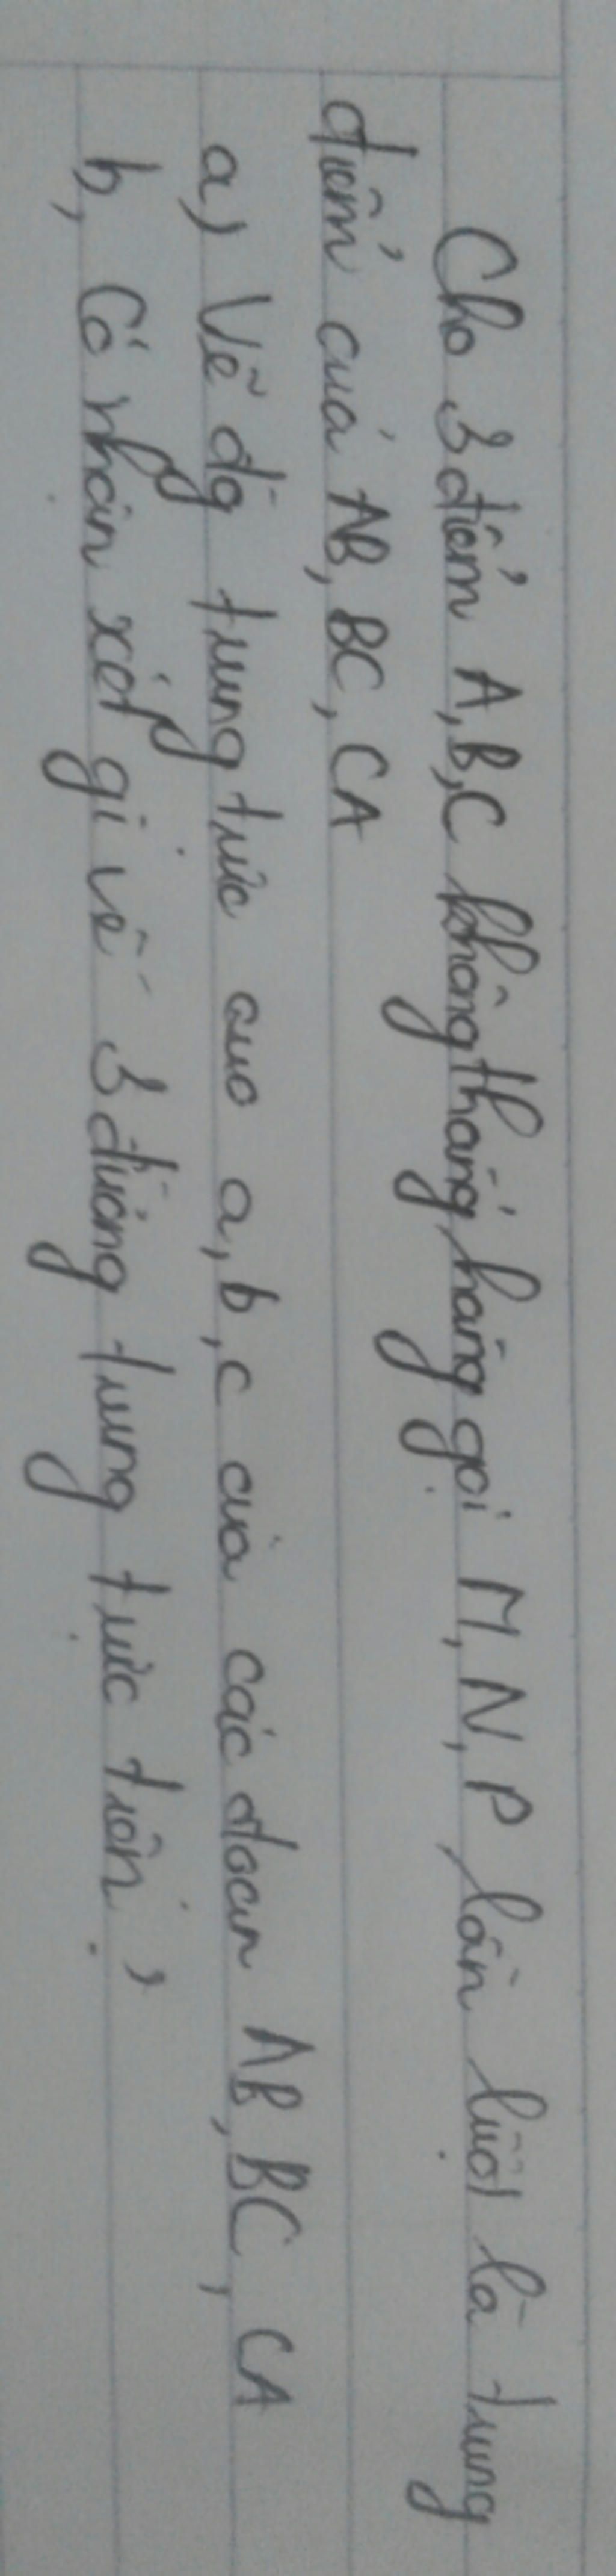 Cho 3 điểm A, B, C không thẳng hàng gọi M, N, P lần lượt là trung
điểm của AB, BC, CA
a, Vẽ đg trung trực a, b, c của các đoạn AB, BC, CA
b, Có nhận xét gì về 3 đường trung trực trên?